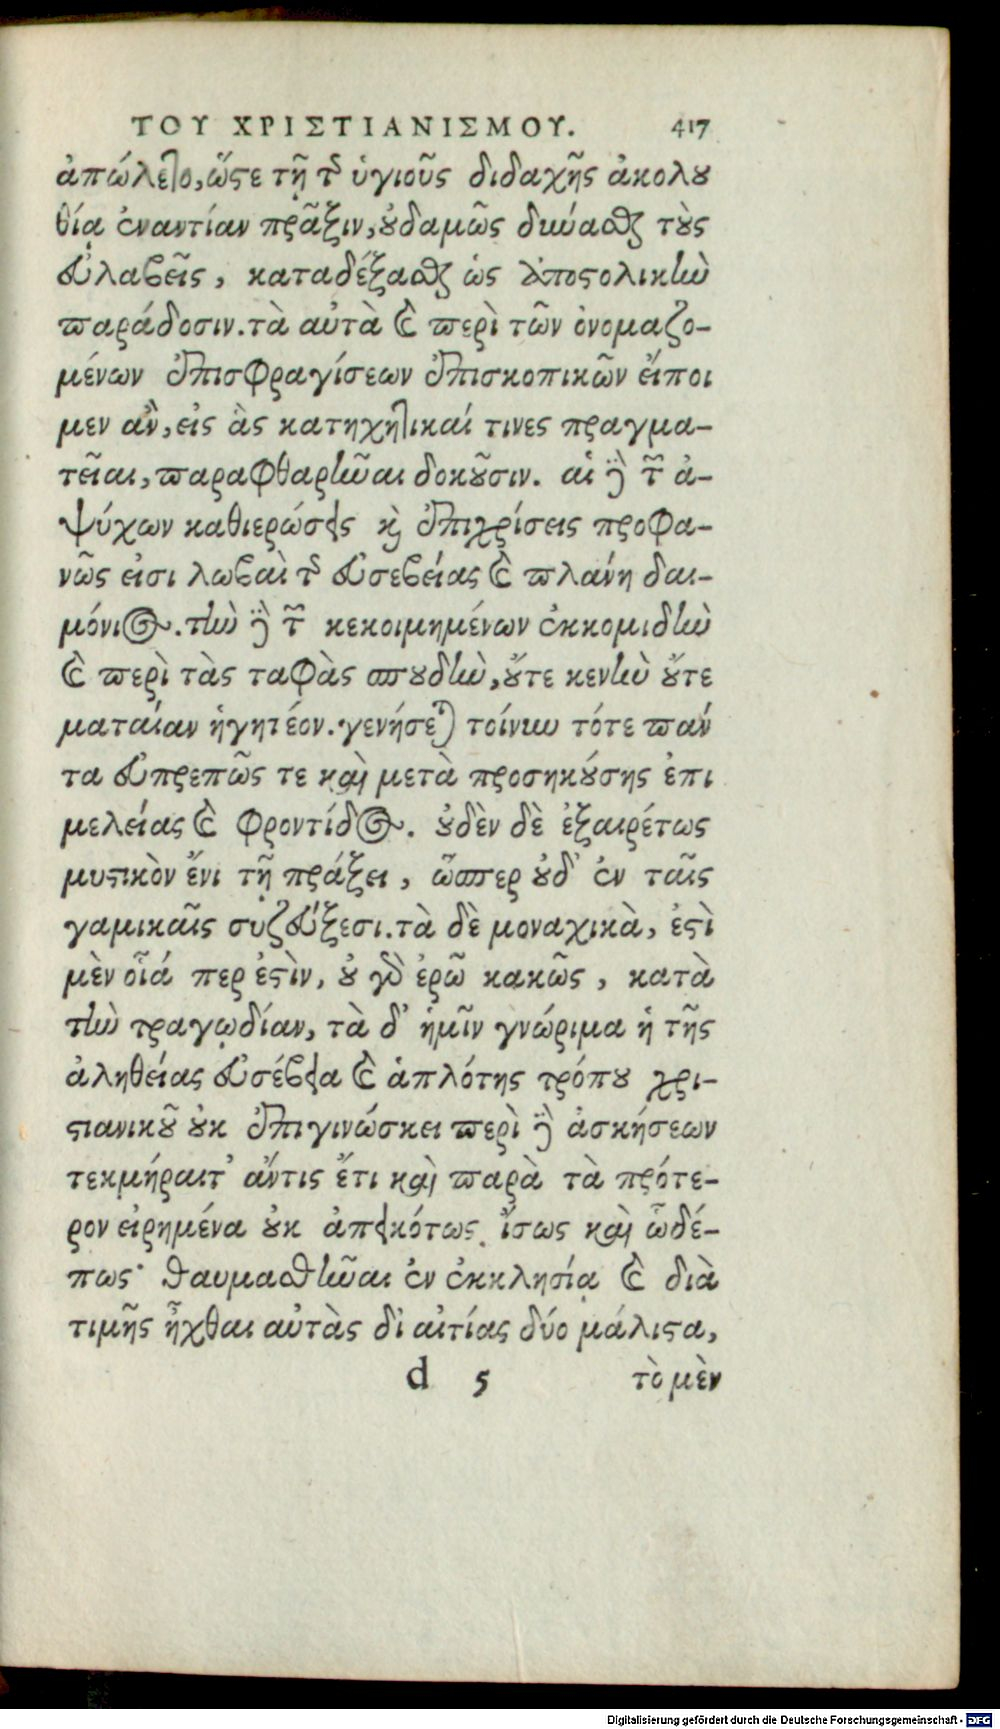 ΤΟΥ ΧΡΙΣΤΙΑΝΙΣΜΟΥ. 417
ἀπώλετο, ὥστε τῇ τοῦ ὑγιοῦς διδαχῆς ἀκολου
θίᾳ ἐναντίαν πρᾶξιν, οὐδαμῶς δύνασθαι τοὺς
εὐλαβεῖς, καταδέξασθαι ὡς ἀποστολικὴν
παράδοσιν. τὰ αὐτὰ καὶ περὶ τῶν ὀνομαζο-
μένων ἐπισφραγίσεων ἐπισκοπικῶν εἴποι
μεν ἂν, εἰς ἃς κατηχητικαί τινες πραγμα-
τεῖαι, παραφθαρῆναι δοκοῦσιν. αἱ δὲ τῶν ἀ-
ψύχων καθιερώσεις καὶ ἐπιχρίσεις προφα-
νῶς εἰσι λωβαὶ τῆς εὐσεβείας καὶ πλάνη δαι-
μόνιος. τὴν δὲ τῶν κεκοιμημένων ἐκκομιδὴν
καὶ περὶ τὰς ταφὰς σπουδὴν, οὔτε κενὴν οὔτε
ματαίαν ἡγητέον. γενήσεται τοίνυν τότε πάν
τα εὐπρεπῶς τε καὶ μετὰ προσηκούσης ἐπι
μελείας καὶ φροντίδος. οὐδὲν δὲ ἐξαιρέτως
μυστικὸν ἔνι τῇ πράξει, ὥσπερ οὐδ' ἐν ταῖς
γαμικαῖς συζεύξεσι. τὰ δὲ μοναχικὰ, ἐστὶ
μὲν οἷά περ ἐστὶν, οὐ γὰρ ἐρῶ κακῶς, κατὰ
τὴν τραγῳδίαν, τὰ δ' ἡμῖν γνώριμα ἡ τῆς
ἀληθείας εὐσέβεια καὶ ἁπλότης τρόπου χρι-
στιανικοῦ οὐκ ἐπιγινώσκει περὶ δὲ ἀσκήσεων
τεκμήραιτ' ἄντις ἔτι καὶ παρὰ τὰ πρότε-
ρον εἰρημένα οὐκ ἀπεικότως ἴσως καὶ ὧδέ-
πως· θαυμασθῆναι ἐν ἐκκλησίᾳ καὶ διὰ
τιμῆς ἦχθαι αὐτὰς δι αἰτίας δύο μάλιστα,
d 5 τὸ μὲν
Digitalisierung gefördert durch die Deutsche Forschungsgemeinschaft - DFG